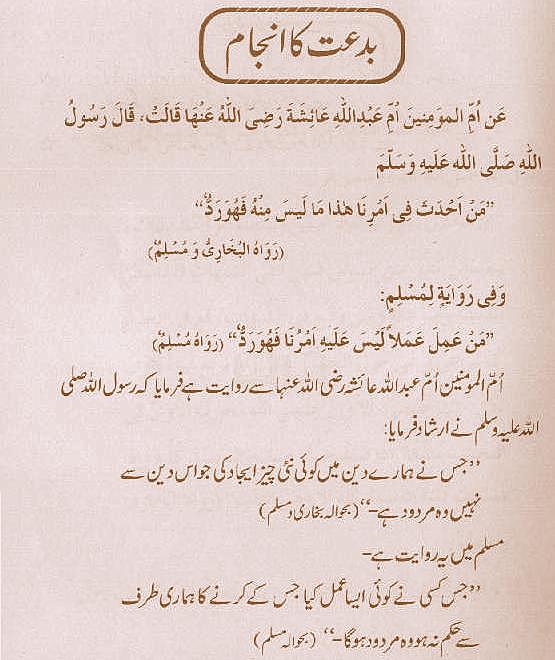 بدعت کا انجام
عَن اُمِّ المؤمِنِينَ اُمِّ عَبْدِاللهِ عَائِشَةَ رَضِىَ اللهُ عَنْهَا قَالَتْ، قَالَ رَسُولُ
اللهِ صَلَّى الله عَلَيهِ وَسَلَّمَ
”مَنْ اَحْدَثَ فِى اَمْرِنَا هٰذا مَا لَيسَ مِنْهُ فَهُوَرَدٌّ“
(رَوَاهُ البُخَارِىُّ وَ مُسْلِمٌ)
وَفِى رَوَايَةٍ لِمُسْلِمٍ:
”مَنْ عَمِلَ عَمَلاً لَيْسَ عَلَيهِ اَمْرُنَا فَهُوَرَدٌّ“ (رَوَاهُ مُسْلِمٌ)
اُمّ المومنین اُمّ عبداللہ عائشہ رضی اللہ عنہا سے روایت ہے فرمایا کہ رسول اللہ صلی
اللہ علیہ وسلم نے ارشاد فرمایا:
”جس نے ہمارے دین میں کوئی نئی چیز ایجاد کی جو اس دین سے
نہیں وہ مردود ہے۔“ (بحوالہ بخاری و مسلم)
مسلم میں یہ روایت ہے۔
”جس کسی نے کوئی ایسا عمل کیا جس کے کرنے کا ہماری طرف
سے حکم نہ ہو وہ مردود ہوگا۔“ (بحوالہ مسلم)